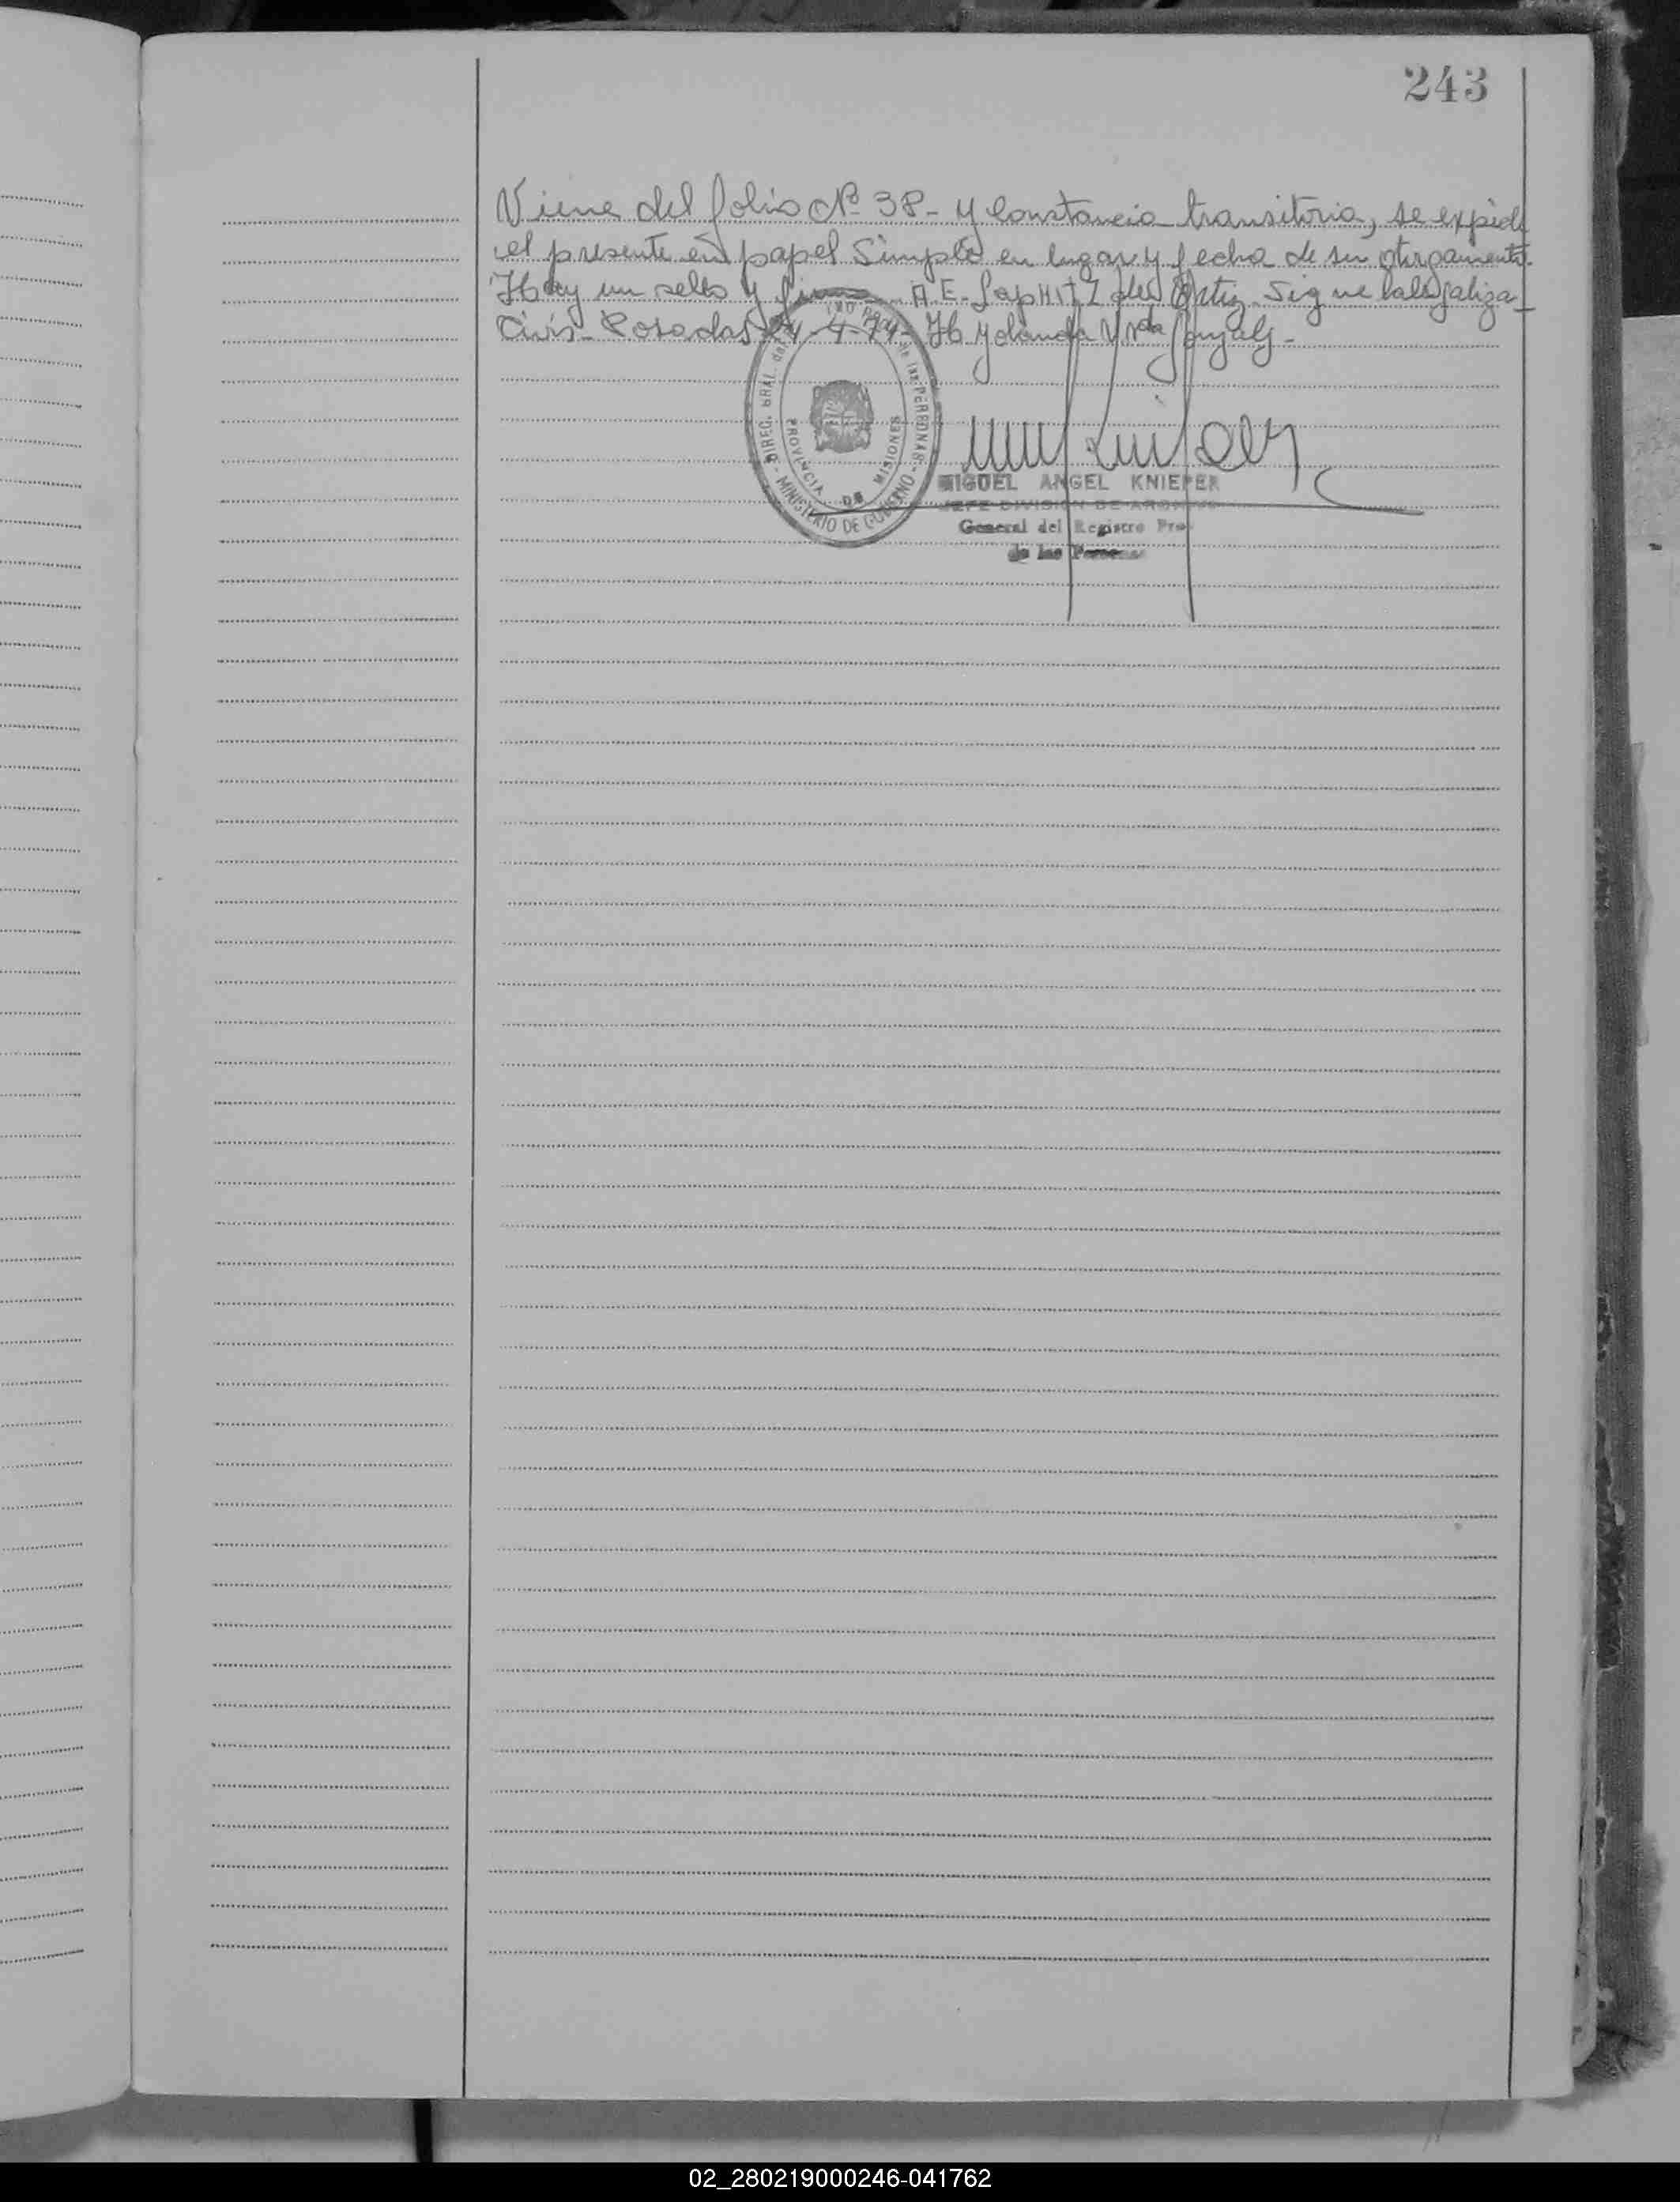 243
Viene del folio Nº 38- y Constancia transitoria, se expide
el presente en papel Simple en lugar y fecha de su otorgamiento.
Hay un sello y firma A.E. Laphitz de Ortiz. Sigue la legaliza-
Ción- Posadas 4-74- Yolanda V. Vda González-
DIREG. GRAL. del de las PERSONAS - MINISTERIO DE GOBIERNO -
PROVINCIA DE MISIONES
MIGUEL ANGEL KNIEPER
JEFE DIVISION DE ARCHIVO
General del Registro Pro
de las Personas
02_280219000246-041762